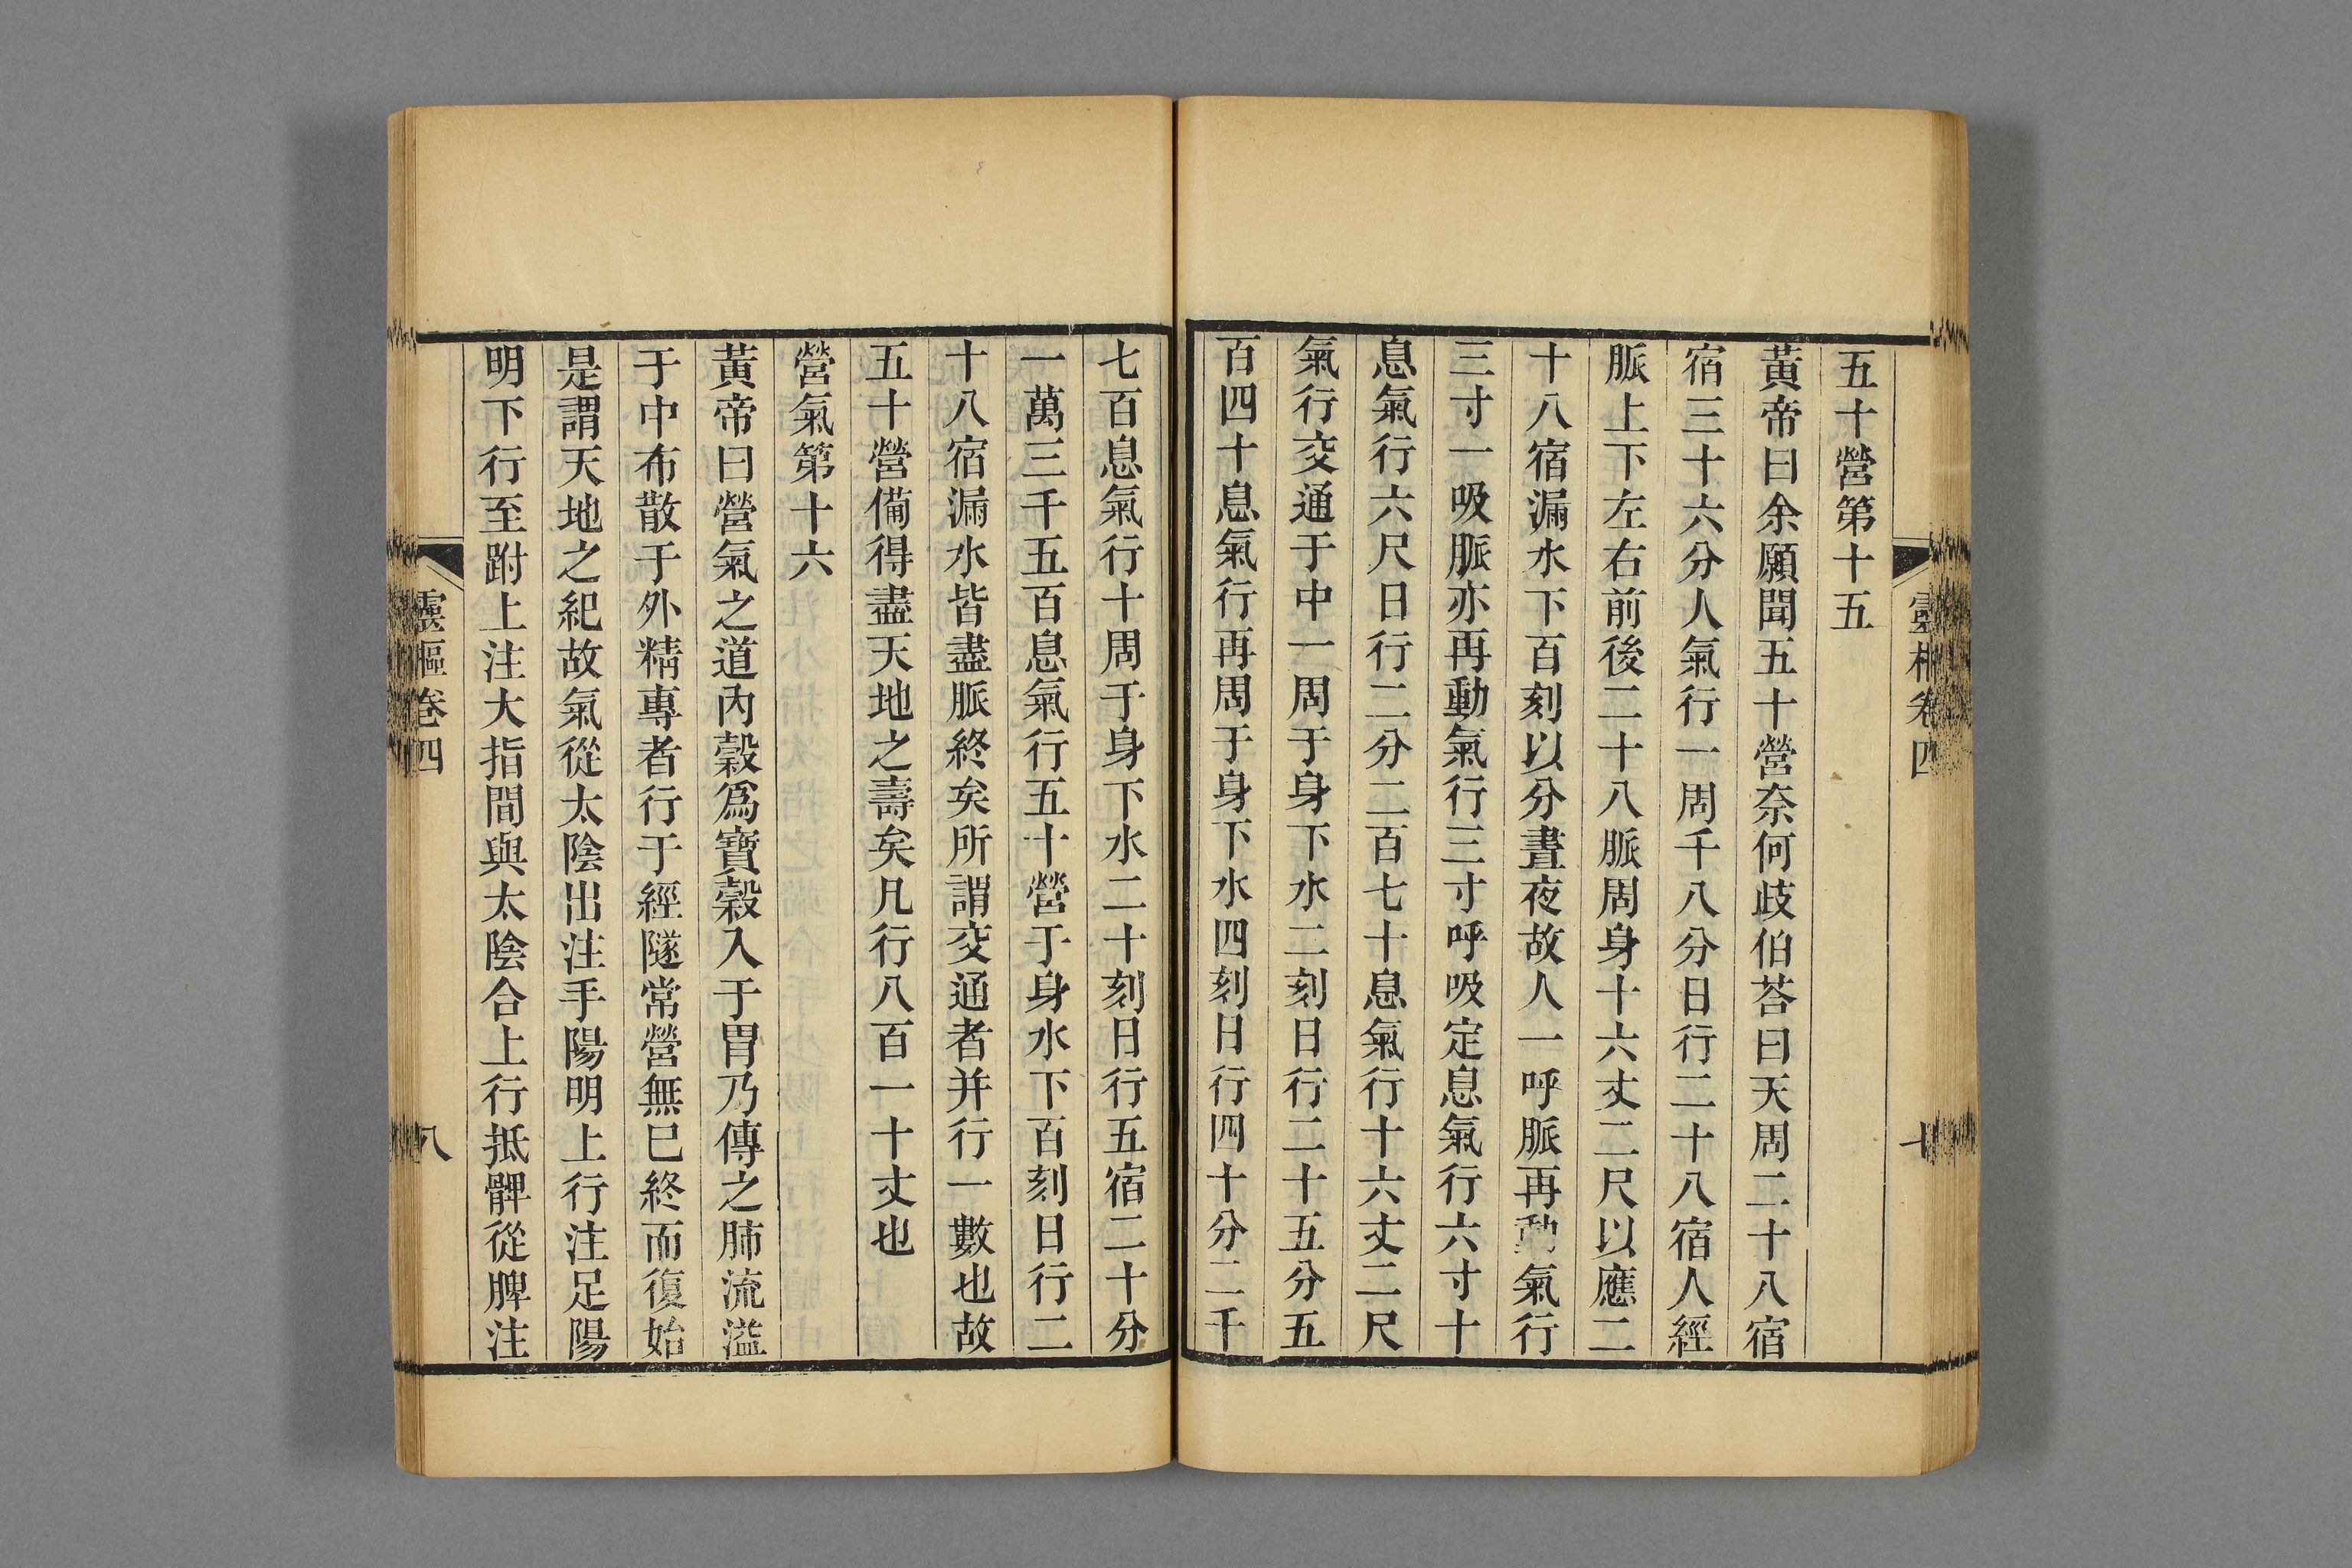 五十營第十五
黃帝曰余願聞五十營奈何歧伯荅曰天周二十八宿
宿三十六分人氣行一周千八分日行二十八宿人經
脈上下左右前後二十八脈周身十六丈二尺以應二
十八宿漏水下百刻以分晝夜故人一呼脈再動氣行
三寸一吸脈亦再動氣行三寸呼吸定息氣行六寸十
息氣行六尺日行二分二百七十息氣行十六丈二尺
氣行交通于中一周于身下水二刻日行二十五分五
百四十息氣行再周于身下水四刻日行四十分二千
七百息氣行十周于身下水二十刻日行五宿二十分
一萬三千五百息氣行五十營于身水下百刻日行二
十八宿漏水皆盡脈終矣所謂交通者并行一數也故
五十營備得盡天地之壽矣凡行八百一十丈也
營氣第十六
黃帝曰營氣之道內穀爲寶穀入于胃乃傳之肺流溢
于中布散于外精專者行于經隧常營無已終而復始
是謂天地之紀故氣從太陰出注手陽明上行注足陽
明下行至跗上注大指間與太陰合上行抵髀從脾注
靈樞卷四
八